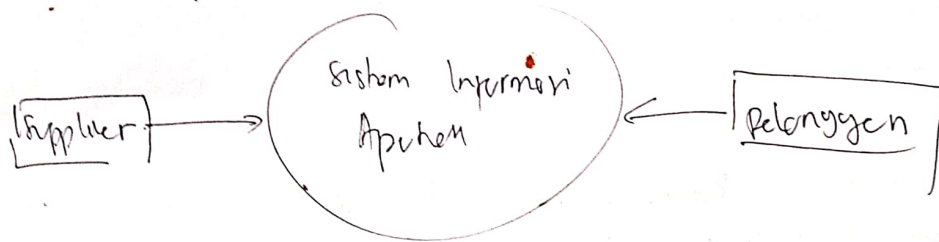 Supplier
Sistem Informasi
Apotek
Pelanggan